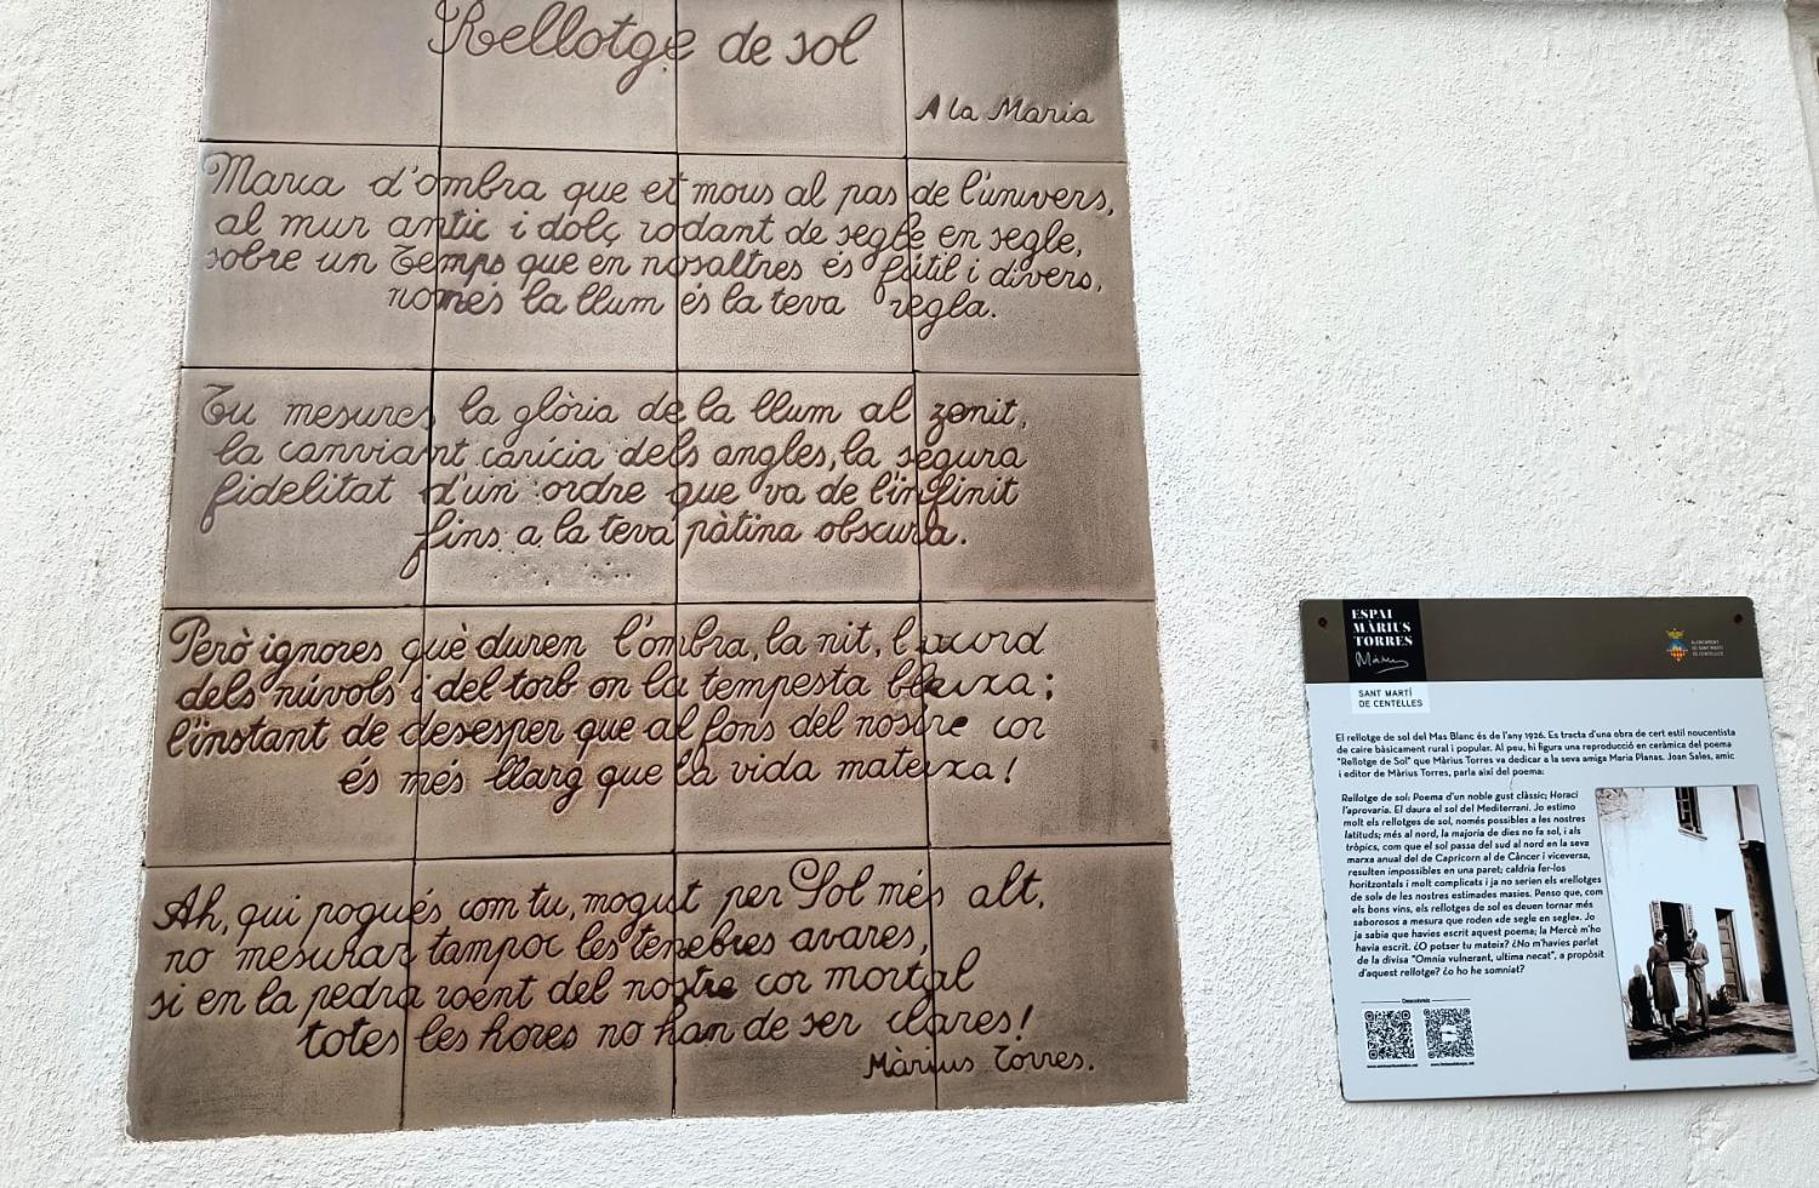 Rellotge de sol
A la Maria
Marca d'ombra que et mous al pas de l'univers,
al mur antic i dolç rodant de segle en segle,
sobre un Temps que en nosaltres és fútil i divers,
només la llum és la teva regla.
Tu mesures la glòria de la llum al zenit,
la canviant carícia dels angles, la segura
fidelitat d'un ordre que va de l'infinit
fins a la teva pàtina obscura.
Però ignores què duren l'ombra, la nit, l'acord
dels núvols i del torb on la tempesta bleixa;
l'instant de desesper que al fons del nostre cor
és més llarg que la vida mateixa!
Ah, qui pogués com tu, mogut per Sol més alt,
no mesurar tampoc les tenebres avares,
si en la pedra roent del nostre cor mortal
totes les hores no han de ser clares!
Màrius Torres.
ESPAI
MÀRIUS
TORRES
Màrius
AJUNTAMENT
DE SANT MARTÍ
DE CENTELLES
SANT MARTÍ
DE CENTELLES
El rellotge de sol del Mas Blanc és de l'any 1926. Es tracta d'una obra de cert estil noucentista
de caire bàsicament rural i popular. Al peu, hi figura una reproducció en ceràmica del poema
"Rellotge de Sol" que Màrius Torres va dedicar a la seva amiga Maria Planas. Joan Sales, amic
i editor de Màrius Torres, parla així del poema:
Rellotge de sol: Poema d'un noble gust clàssic; Horaci
l'aprovaria. El daura el sol del Mediterrani. Jo estimo
molt els rellotges de sol, només possibles a les nostres
latituds; més al nord, la majoria de dies no fa sol, i als
tròpics, com que el sol passa del sud al nord en la seva
marxa anual del de Capricorn al de Càncer i viceversa,
resulten impossibles en una paret; caldria fer-los
horitzontals i molt complicats i ja no serien els «rellotges
de sol» de les nostres estimades masies. Penso que, com
els bons vins, els rellotges de sol es deuen tornar més
saborosos a mesura que roden «de segle en segle». Jo
ja sabia que havies escrit aquest poema; la Mercè m'ho
havia escrit. ¿O potser tu mateix? ¿No m'havies parlat
de la divisa "Omnia vulnerant, ultima necat", a propòsit
d'aquest rellotge? ¿o ho he somniat?